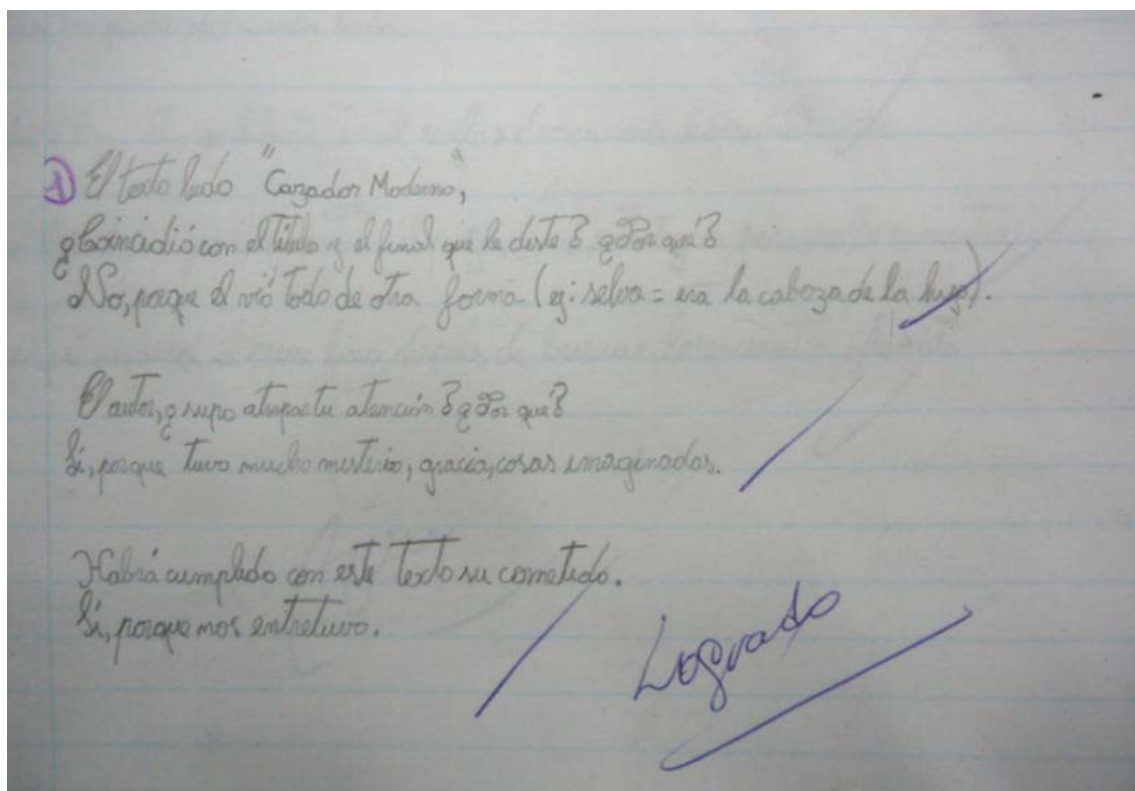 ① El texto leído "Cazador Moderno",
¿Coincidió con el título y el final que le diste? ¿Por qué?
No, porque él vió todo de otra forma (ej: selva = era la cabeza de la hija).
El autor, ¿supo atrapar tu atención? ¿Por qué?
Sí, porque tuvo mucho misterio, gracia, cosas imaginadas.
Habrá cumplido con este texto su cometido.
Sí, porque nos entretuvo.
Logrado